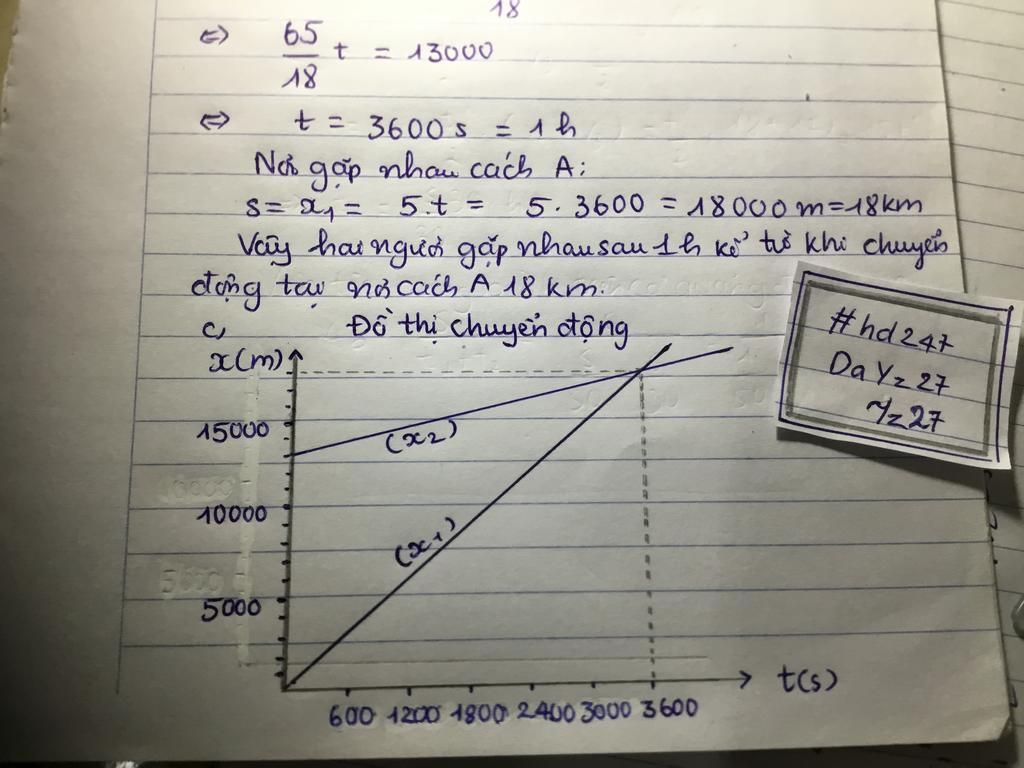 18
⇔ 65/18 t = 13000
⇔ t = 3600 s = 1 h
Nơi gặp nhau cách A:
s = x₁ = 5.t = 5.3600 = 18000 m = 18 km
Vậy hai người gặp nhau sau 1h kể từ khi chuyển
động tại nơi cách A 18 km.
c, Đồ thị chuyển động
x(m)
15000
(x₂)
10000
(x₁)
5000
t(s)
600 1200 1800 2400 3000 3600
#hd247
DaY_z 27
1/z 27